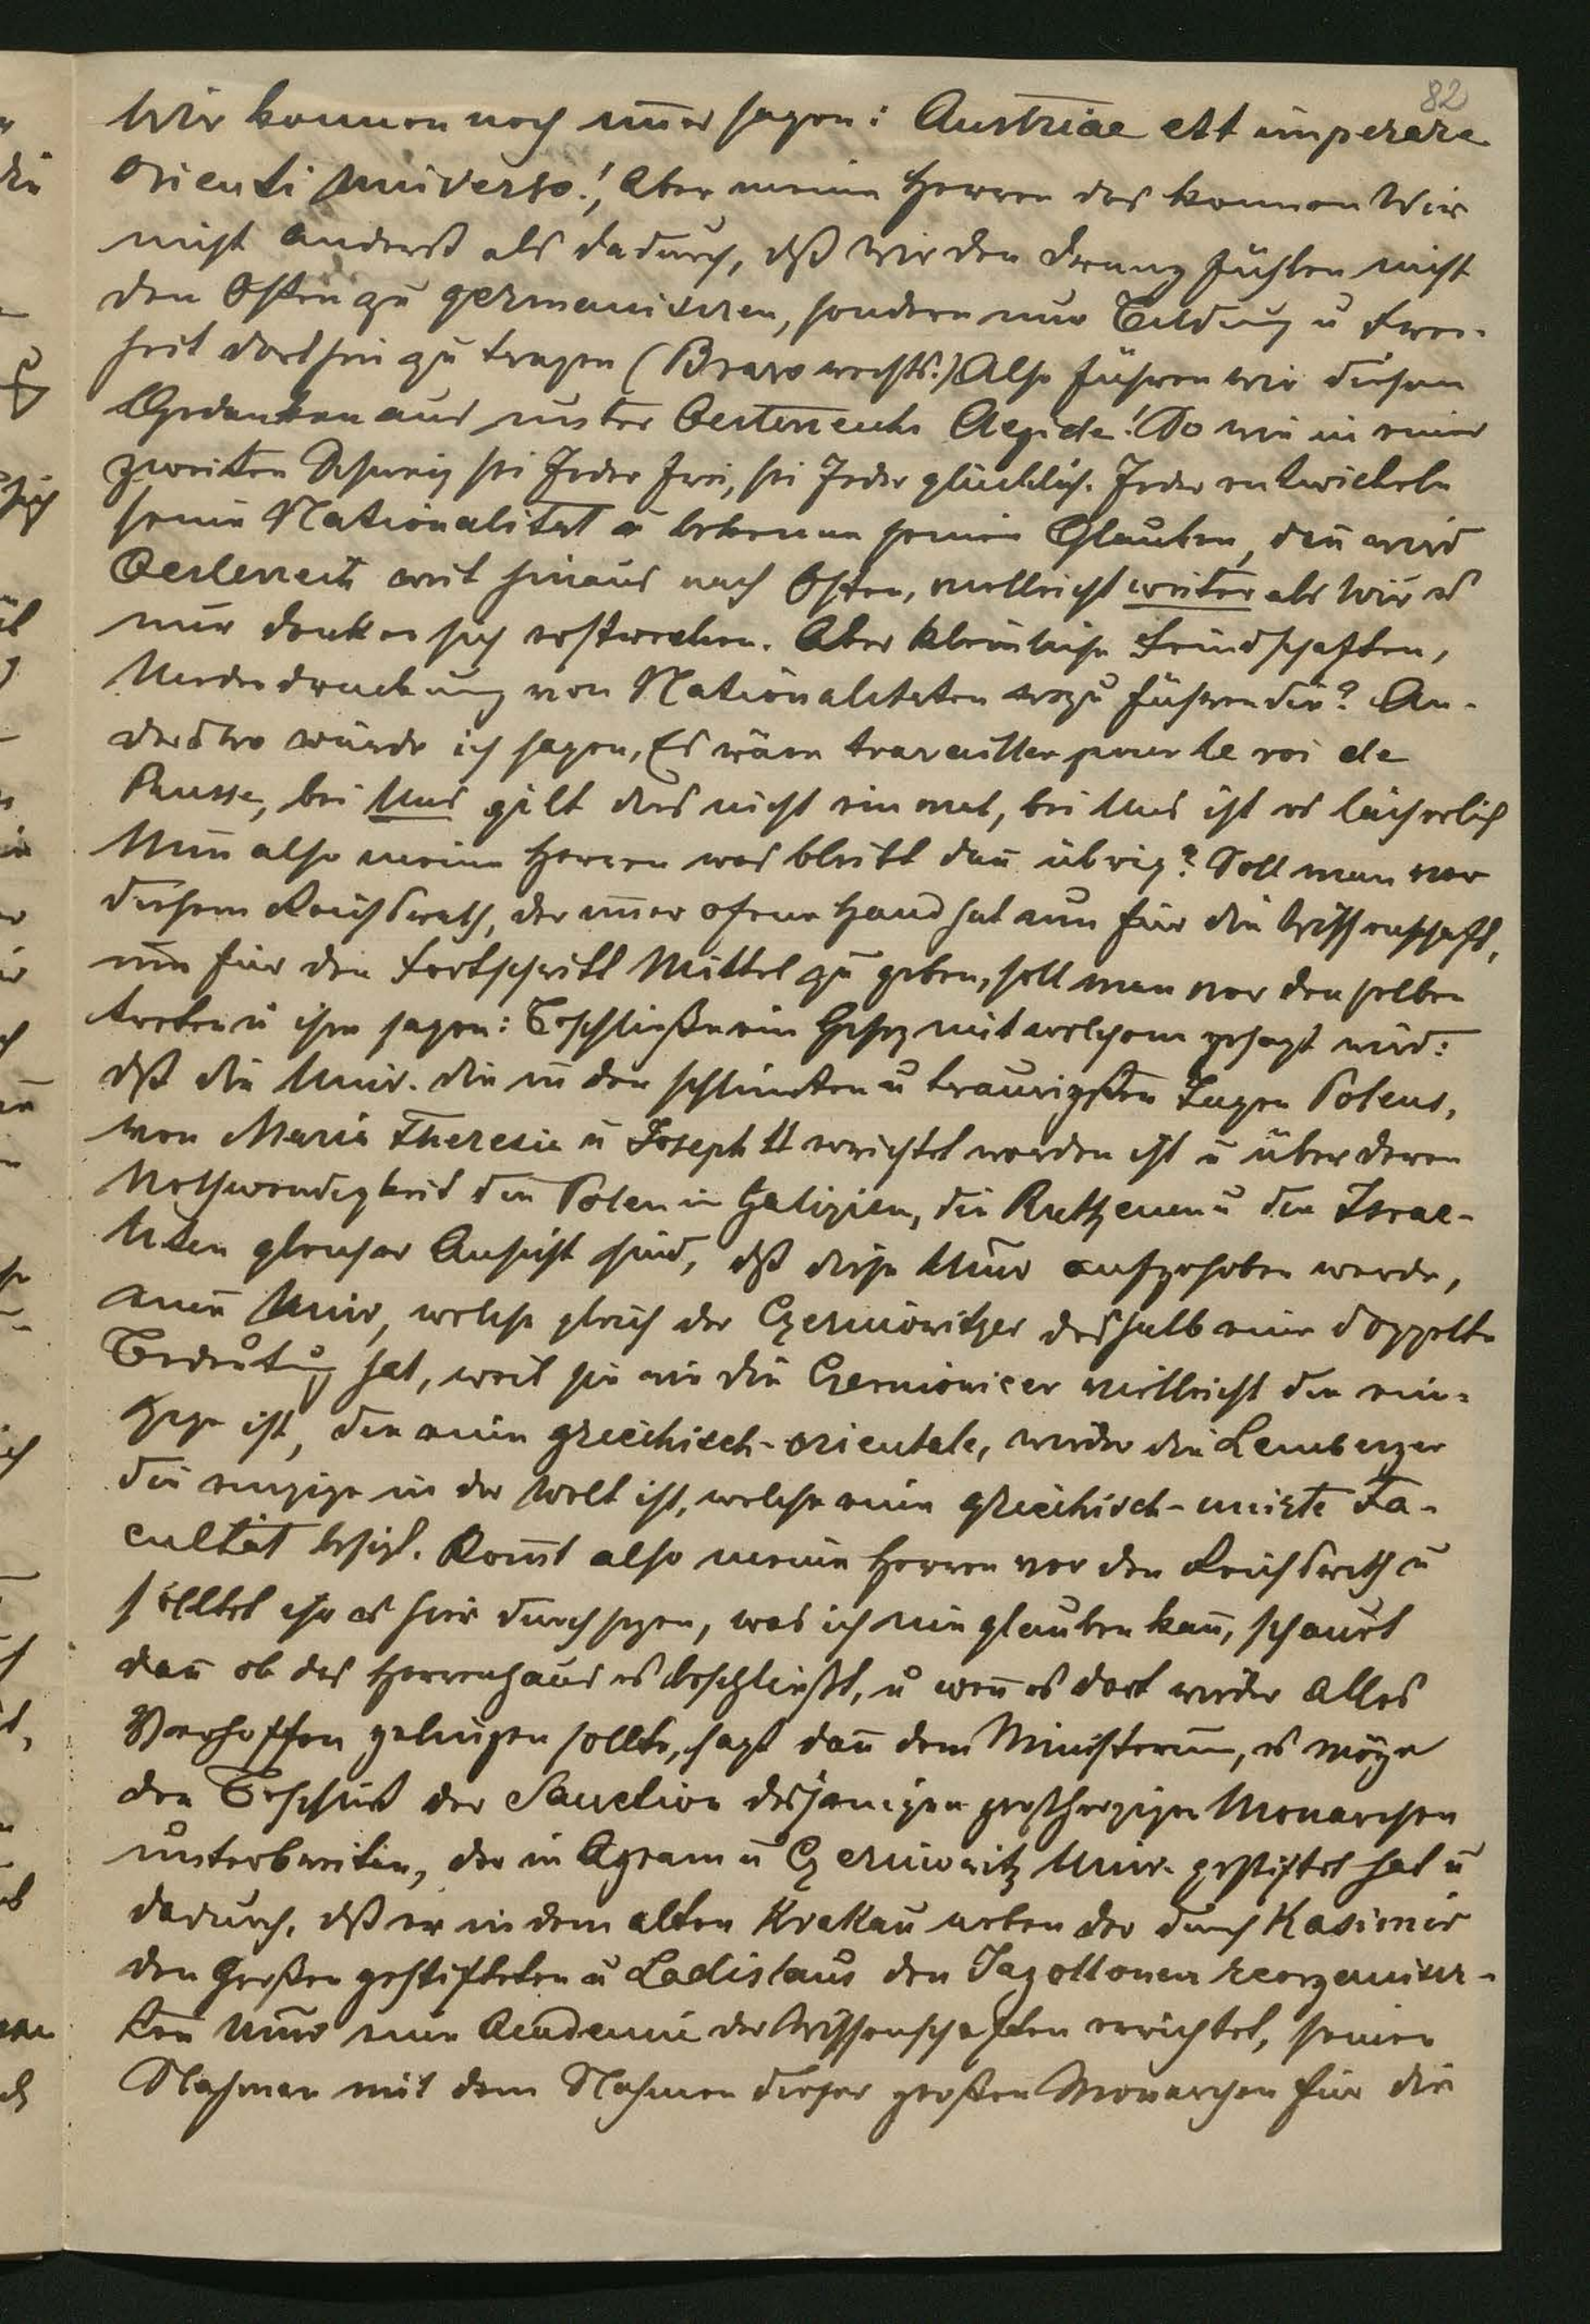 82
Wir konnen noch im̄er sagen: Austriae est imperare
Orienti Universo!, Aber meine Herren das konnen Wir
nicht anderst als dadurch, dß wir den Drang fühlen nicht
den Osten zu germanisiren, sondern nur Bildung u Frei-
heit dorthin zu tragen (Bravo rechts.) Also führen wir diesen
Gedanken aus unter Oesterreichs Aegide! So wie in einer
zweiten Schweiz sei Jeder frei, sei Jeder glücklich. Jeder entwickele
seine Nationalität u bekenne seinen Glauben, dan̄ wird
Oesterreich weit hinaus nach Osten, vielleicht weiter als Wir es
nur denken sich erstrecken. Aber kleinliche Feindschaften,
Unterdruckung von Nationalitaten wozu führen die? An-
derswo würde ich sagen, Es wäre travailler pour le roi de
Prusse, bei Uns gilt das nicht ein mal, bei Uns ist es lächerlich
Nun also meine Herren was bleibt dan̄ übrig? Soll man vor
diesem Reichsrath, der im̄er ofene Hand hat um für die Wissenschaft,
um für den Fortschritt Mittel zu geben, soll man vor denselben
treten u ihm sagen: Beschließe ein Gesez mit welchem gesagt wird:
dß die Univ. die in den schlimsten u traurigsten Tagen Polens,
von Maria Theresia u Joseph II errichtet worden ist u über deren
Nothwendigkeit die Polen in Galizien, die Ruthenen u die Israe-
liten gleicher Ansicht sind, dß diese Univ aufgehoben werde,
eine Univ, welche gleich der Czernowitzer deshalb eine doppelte
Bedeutung hat, weil sie wie die Czernowicer vielleicht die ein-
zige ist, die eine griechisch-orientale, wieder die Lemberger
die einzige in der Welt ist, welche eine griechisch-unirte Fa-
cultät besizt. Kom̄t also meine Herren vor den Reichsrath u
solltet ihr es hier durchsezen, was ich nie glauben kan̄, schauet
dan̄ ob das Herrenhaus es beschließt, u wen̄ es dort wider Alles
Verhoffen gelingen sollte, sagt dan̄ dem Ministerium, es möge
den Beschluß der Sanction desjenigen großherzigen Monarchen
unterbreiten, der in Agram u Czernowitz Univ. gestiftet hat u
dadurch, dß er in dem alten Krakau neben der durch Kasimir
den Großen gestifteten u Ladislaus den Jagollonen reorganisir-
ten Univ eine Academie der Wissenschaften errichtet, seinen
Nahmen mit dem Nahmen dieser großen Monarchen für die